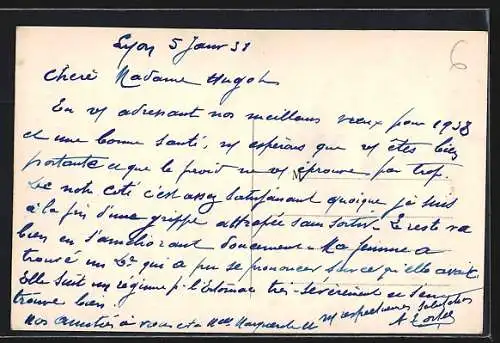 Lyon 5 Janv 38
Chère Madame Hugoh
En vs adressant nos meilleurs vœux pour 1938
et une bonne santé, ns espérons que vs êtes bien
portante et que le froid ne vs éprouve pas trop.
De notre côté c'est assez satisfaisant quoique je suis
à la fin d'une grippe attrapée sans sortir. Le reste va
bien en s'améliorant doucement. Ma femme a
trouvé un Dr qui a pu se prononcer sur ce qu'elle avait.
Elle suit un régime pr l'estomac très sévèrement et s'en
trouve bien
mes respectueuses salutations
Nos amitiés à vous et à Melle Marguerite